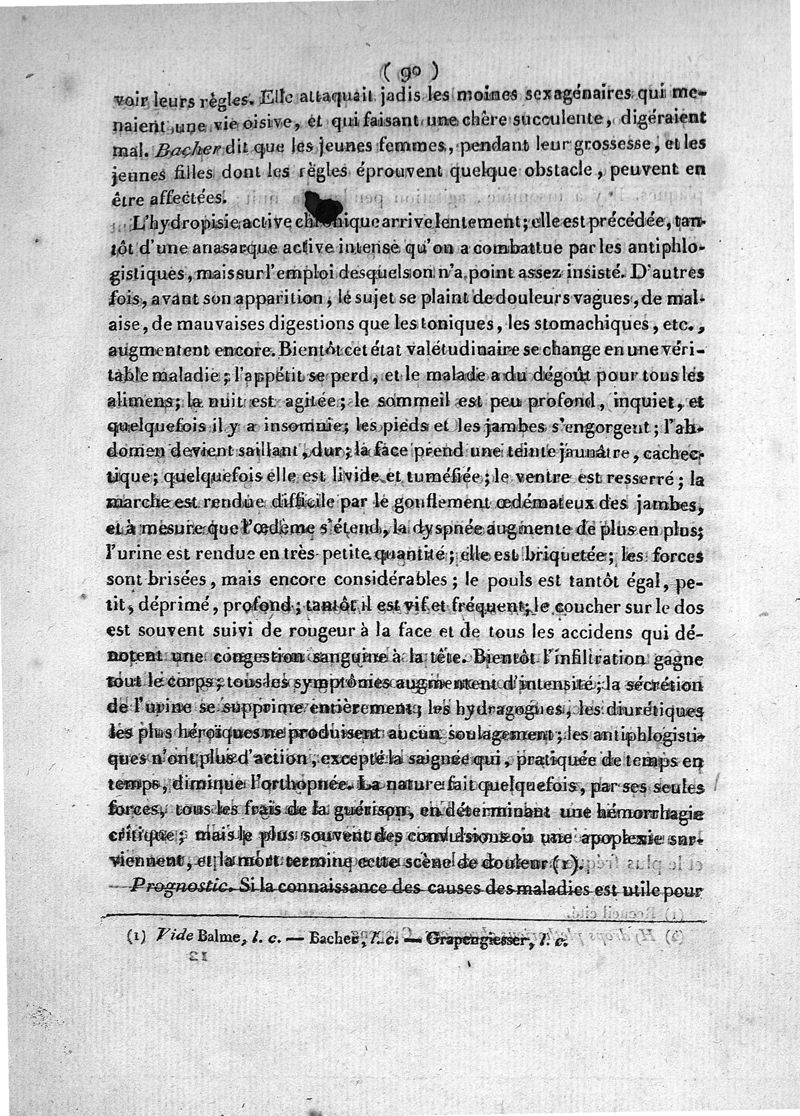 ( 90 )
voir leurs règles. Elle attaquait jadis les moines sexagénaires qui me-
naient une vie oisive, et qui faisant une chère succulente, digéraient
mal. Bacher dit que les jeunes femmes, pendant leur grossesse, et les
jeunes filles dont les règles éprouvent quelque obstacle, peuvent en
être affectées.
L'hydropisie active chronique arrive lentement; elle est précédée, tan-
tôt d'une anasarque active intense qu'on a combattue par les antiphlo-
gistiques, mais sur l'emploi desquels on n'a point assez insisté. D'autres
fois, avant son apparition, le sujet se plaint de douleurs vagues, de mal-
aise, de mauvaises digestions que les toniques, les stomachiques, etc.,
augmentent encore. Bientôt cet état valétudinaire se change en une véri-
table maladie; l'appétit se perd, et le malade a du dégoût pour tous les
alimens; la nuit est agitée; le sommeil est peu profond, inquiet, et
quelquefois il y a insomnie; les pieds et les jambes s'engorgent; l'ab-
domen devient saillant, dur; la face prend une teinte jaunâtre, cachec-
tique; quelquefois elle est livide et tuméfiée; le ventre est resserré; la
marche est rendue difficile par le gonflement œdémateux des jambes,
et à mesure que l'œdème s'étend, la dyspnée augmente de plus en plus;
l'urine est rendue en très-petite quantité; elle est briquetée; les forces
sont brisées, mais encore considérables; le pouls est tantôt égal, pe-
tit, déprimé, profond; tantôt il est vif et fréquent; le coucher sur le dos
est souvent suivi de rougeur à la face et de tous les accidens qui dé-
notent une congestion sanguine à la tête. Bientôt l'infiltration gagne
tout le corps; tous les symptômes augmentent d'intensité; la sécrétion
de l'urine se supprime entièrement; les hydragogues, les diurétiques
les plus héroïques ne produisent aucun soulagement; les antiphlogisti-
ques n'ont plus d'action, excepté la saignée qui, pratiquée de temps en
temps, diminue l'orthopnée. La nature fait quelquefois, par ses seules
forces, tous les frais de la guérison, en déterminant une hémorrhagie
critique; mais le plus souvent des convulsions ou une apoplexie sur-
viennent, et la mort termine cette scène de douleur (1).
Prognostic. Si la connaissance des causes des maladies est utile pour
(1) Vide Balme, l. c. — Bacher, l. c. — Grapengiesser, l. c.
12